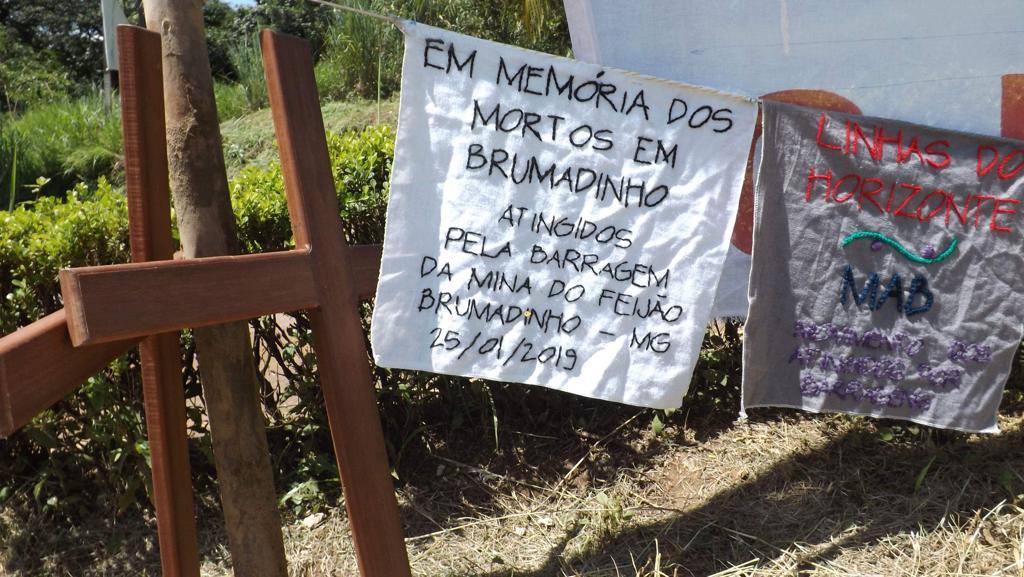 EM MEMÓRIA DOS
MORTOS EM
BRUMADINHO
ATINGIDOS
PELA BARRAGEM
DA MINA DO FEIJÃO
BRUMADINHO - MG
25/01/2019
LINHAS DO
HORIZONTE
MAB
MOVIMENTO DOS
ATINGIDOS POR
BARRAGENS